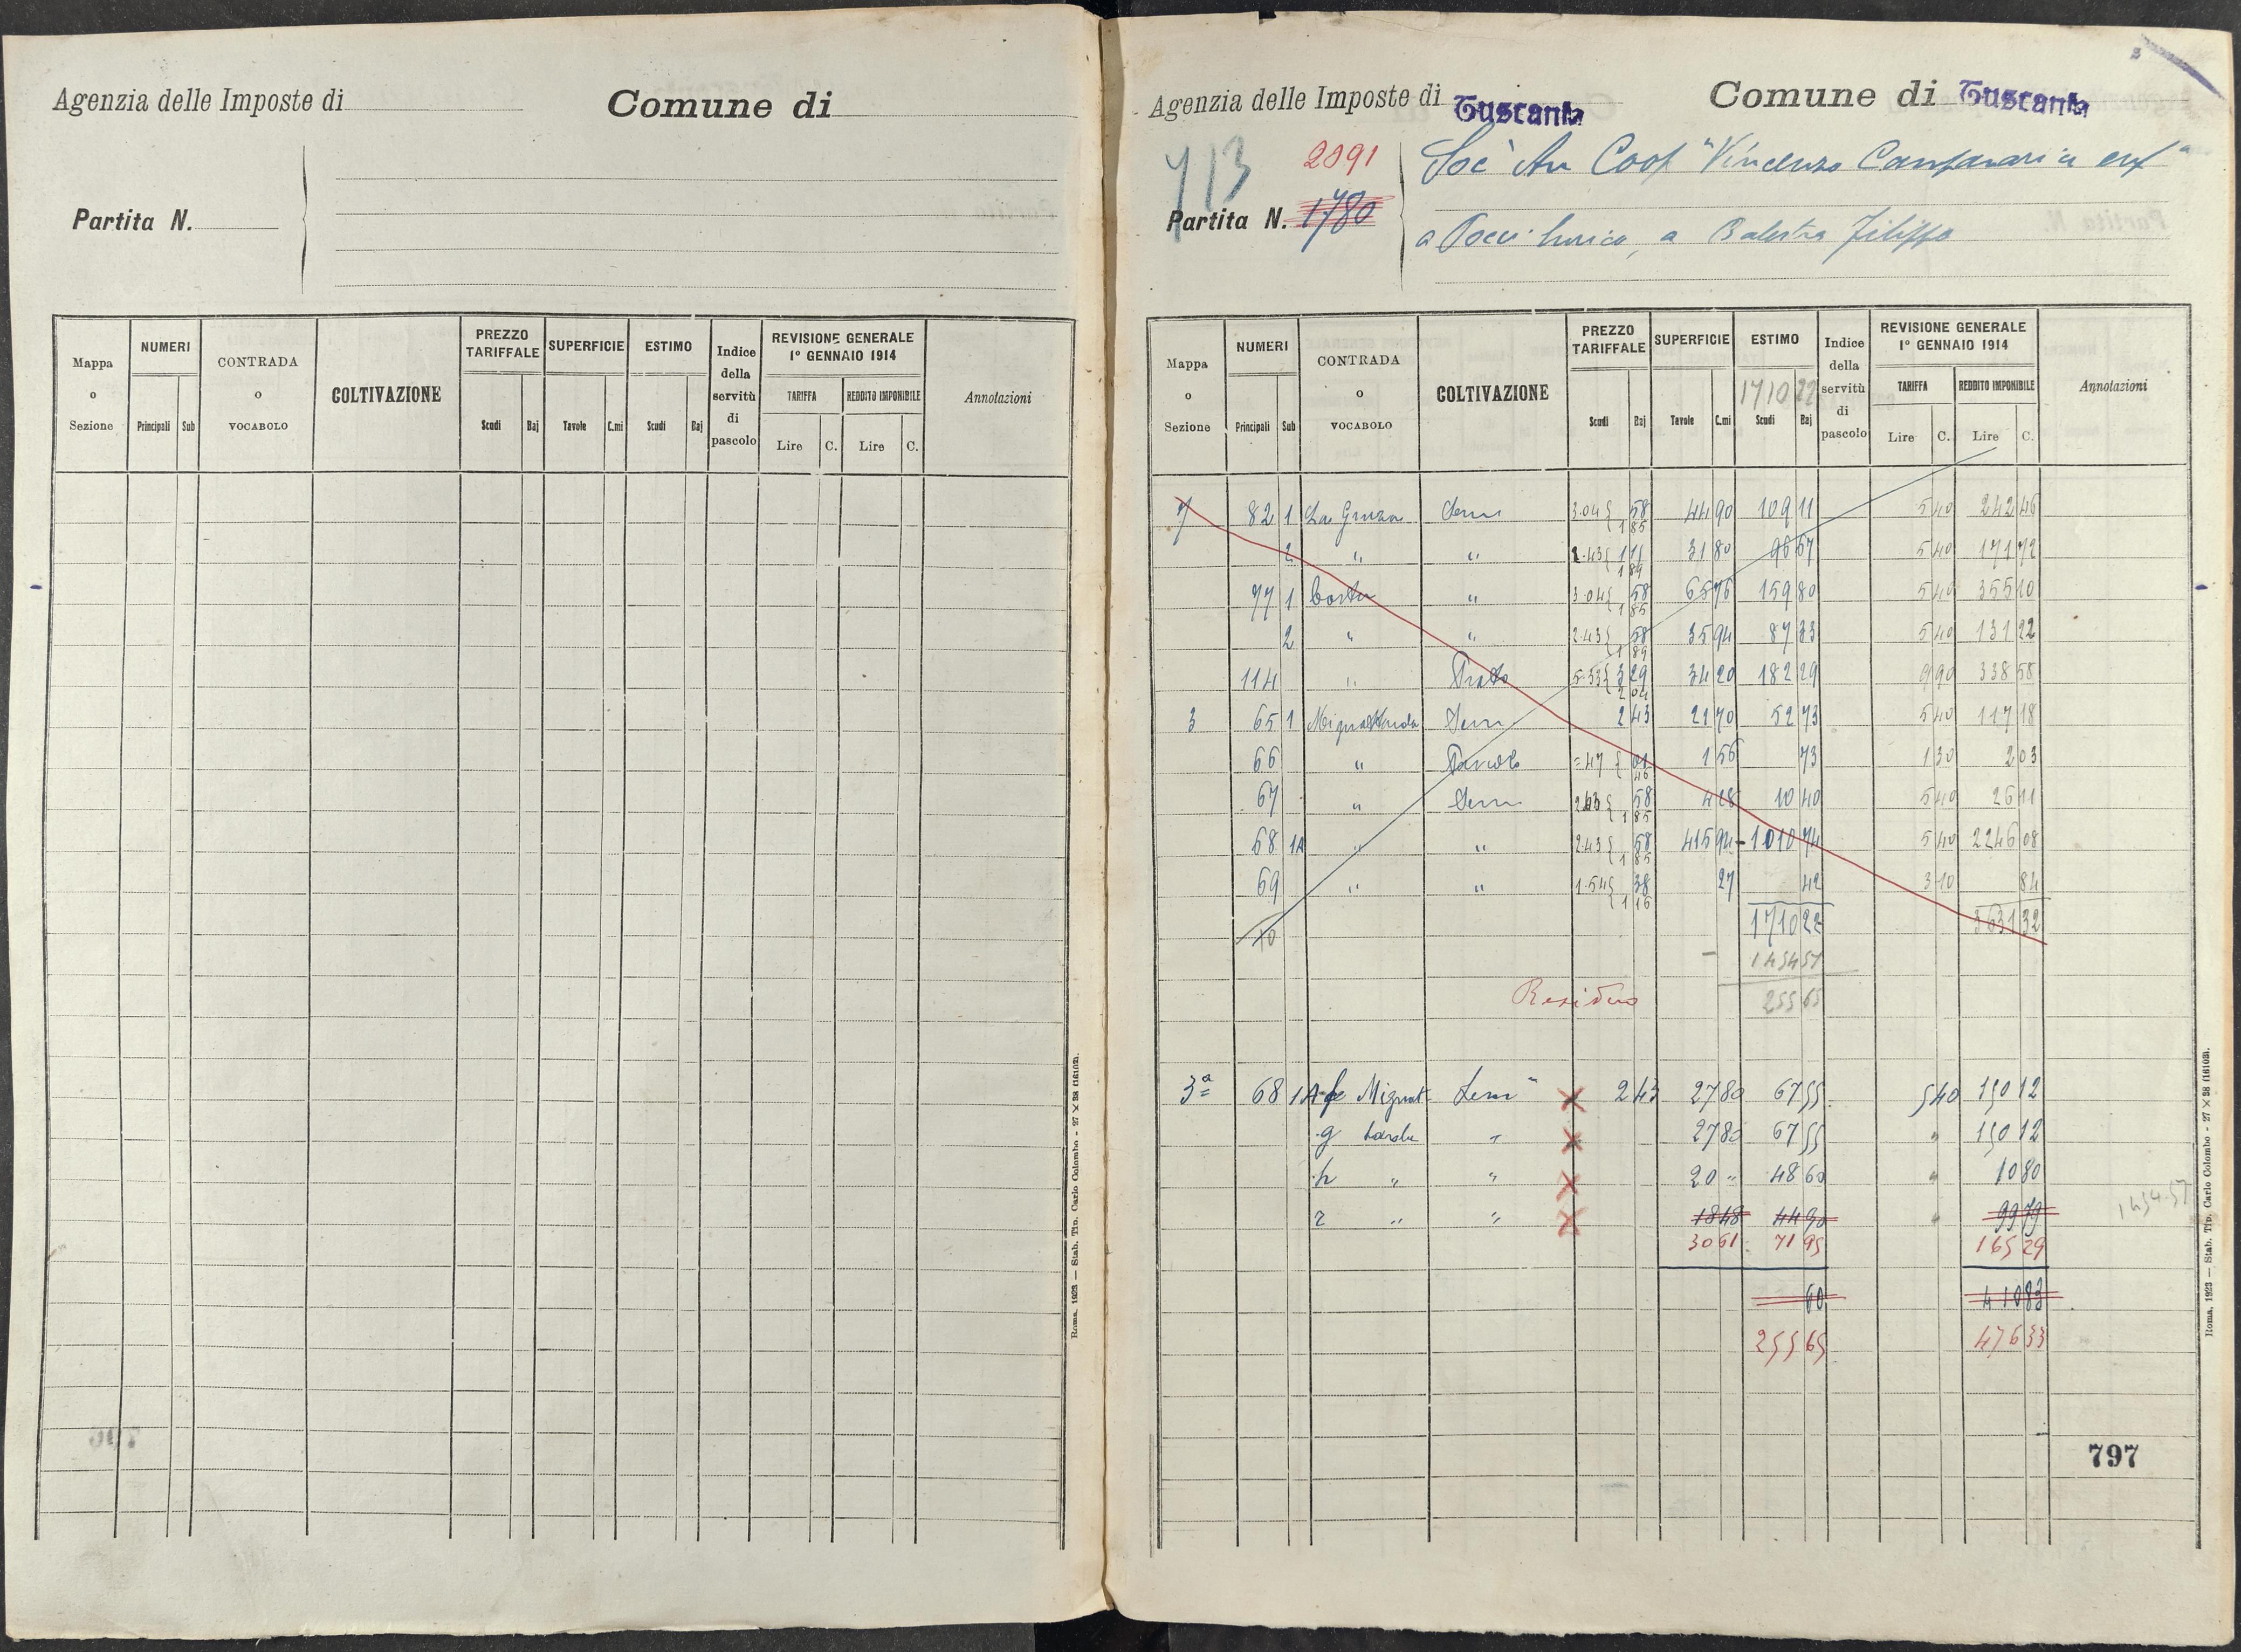 Agenzia delle Imposte di
Comune di
Partita N.
Mappa o Sezione
NUMERI
Principali Sub
CONTRADA o VOCABOLO
COLTIVAZIONE
PREZZO TARIFFALE
Scudi Baj
SUPERFICIE
Tavole C.mi
ESTIMO
Scudi Baj
Indice della servitù di pascolo
REVISIONE GENERALE 1° GENNAIO 1914
TARIFFA REDDITO IMPONIBILE
Lire C. Lire C.
Annotazioni
Roma, 1923 — Stab. Tip. Carlo Colombo - 27 × 38 (1610m.
Agenzia delle Imposte di Tuscania
Comune di Tuscania
713 2091
Partita N. 1780
Soc An Coop "Vincenzo Campanari"
a Balestra Filippo
Mappa o Sezione
NUMERI
Principali Sub
CONTRADA o VOCABOLO
COLTIVAZIONE
PREZZO TARIFFALE
Scudi Baj
SUPERFICIE
Tavole C.mi
ESTIMO
1710 22
Scudi Baj
Indice della servitù di pascolo
REVISIONE GENERALE 1° GENNAIO 1914
TARIFFA REDDITO IMPONIBILE
Lire C. Lire C.
Annotazioni
7 82 1 La Semi 3.04 { 58 1 85 44 90 109 11 5 40 242 46
2 " " 2.43 { 1 89 31 80 67 5 40 171 72
77 1 " 3.04 { 58 1 85 65 76 159 80 5 40 355 10
2 " " 2.43 { 58 1 89 35 94 87 33 5 40 131 22
114 " Prato 5.33 { 3 29 2 04 34 20 182 29 9 90 338 58
3 65 1 Semi 2 43 21 70 52 73 5 40 117 18
66 " Pascolo = 47 { 01 46 1 56 73 1 30 2 03
67 " Semi { 58 1 85 4 28 10 40 5 40 26 11
68 1A " " 2.43 { 58 1 85 415 94 1010 74 5 40 2246 08
69 " " 1.54 { 38 1 16 27 42 3 10 84
10 1710 22 3631 32
1454 57
Residuo 255 65
3ª 68 1A Mignat Semi 2 43 27 80 67 55 5 40 150 12
g " 27 80 67 55 " 150 12
h " " 20 " 48 60 " 10 80
r " " 18 48 44 90 " 99 79
1454.57
30 61 71 95 165 29
60 410 83
255 65 476 33
797
Roma, 1923 — Stab. Tip. Carlo Colombo - 27 × 38 (1610m.